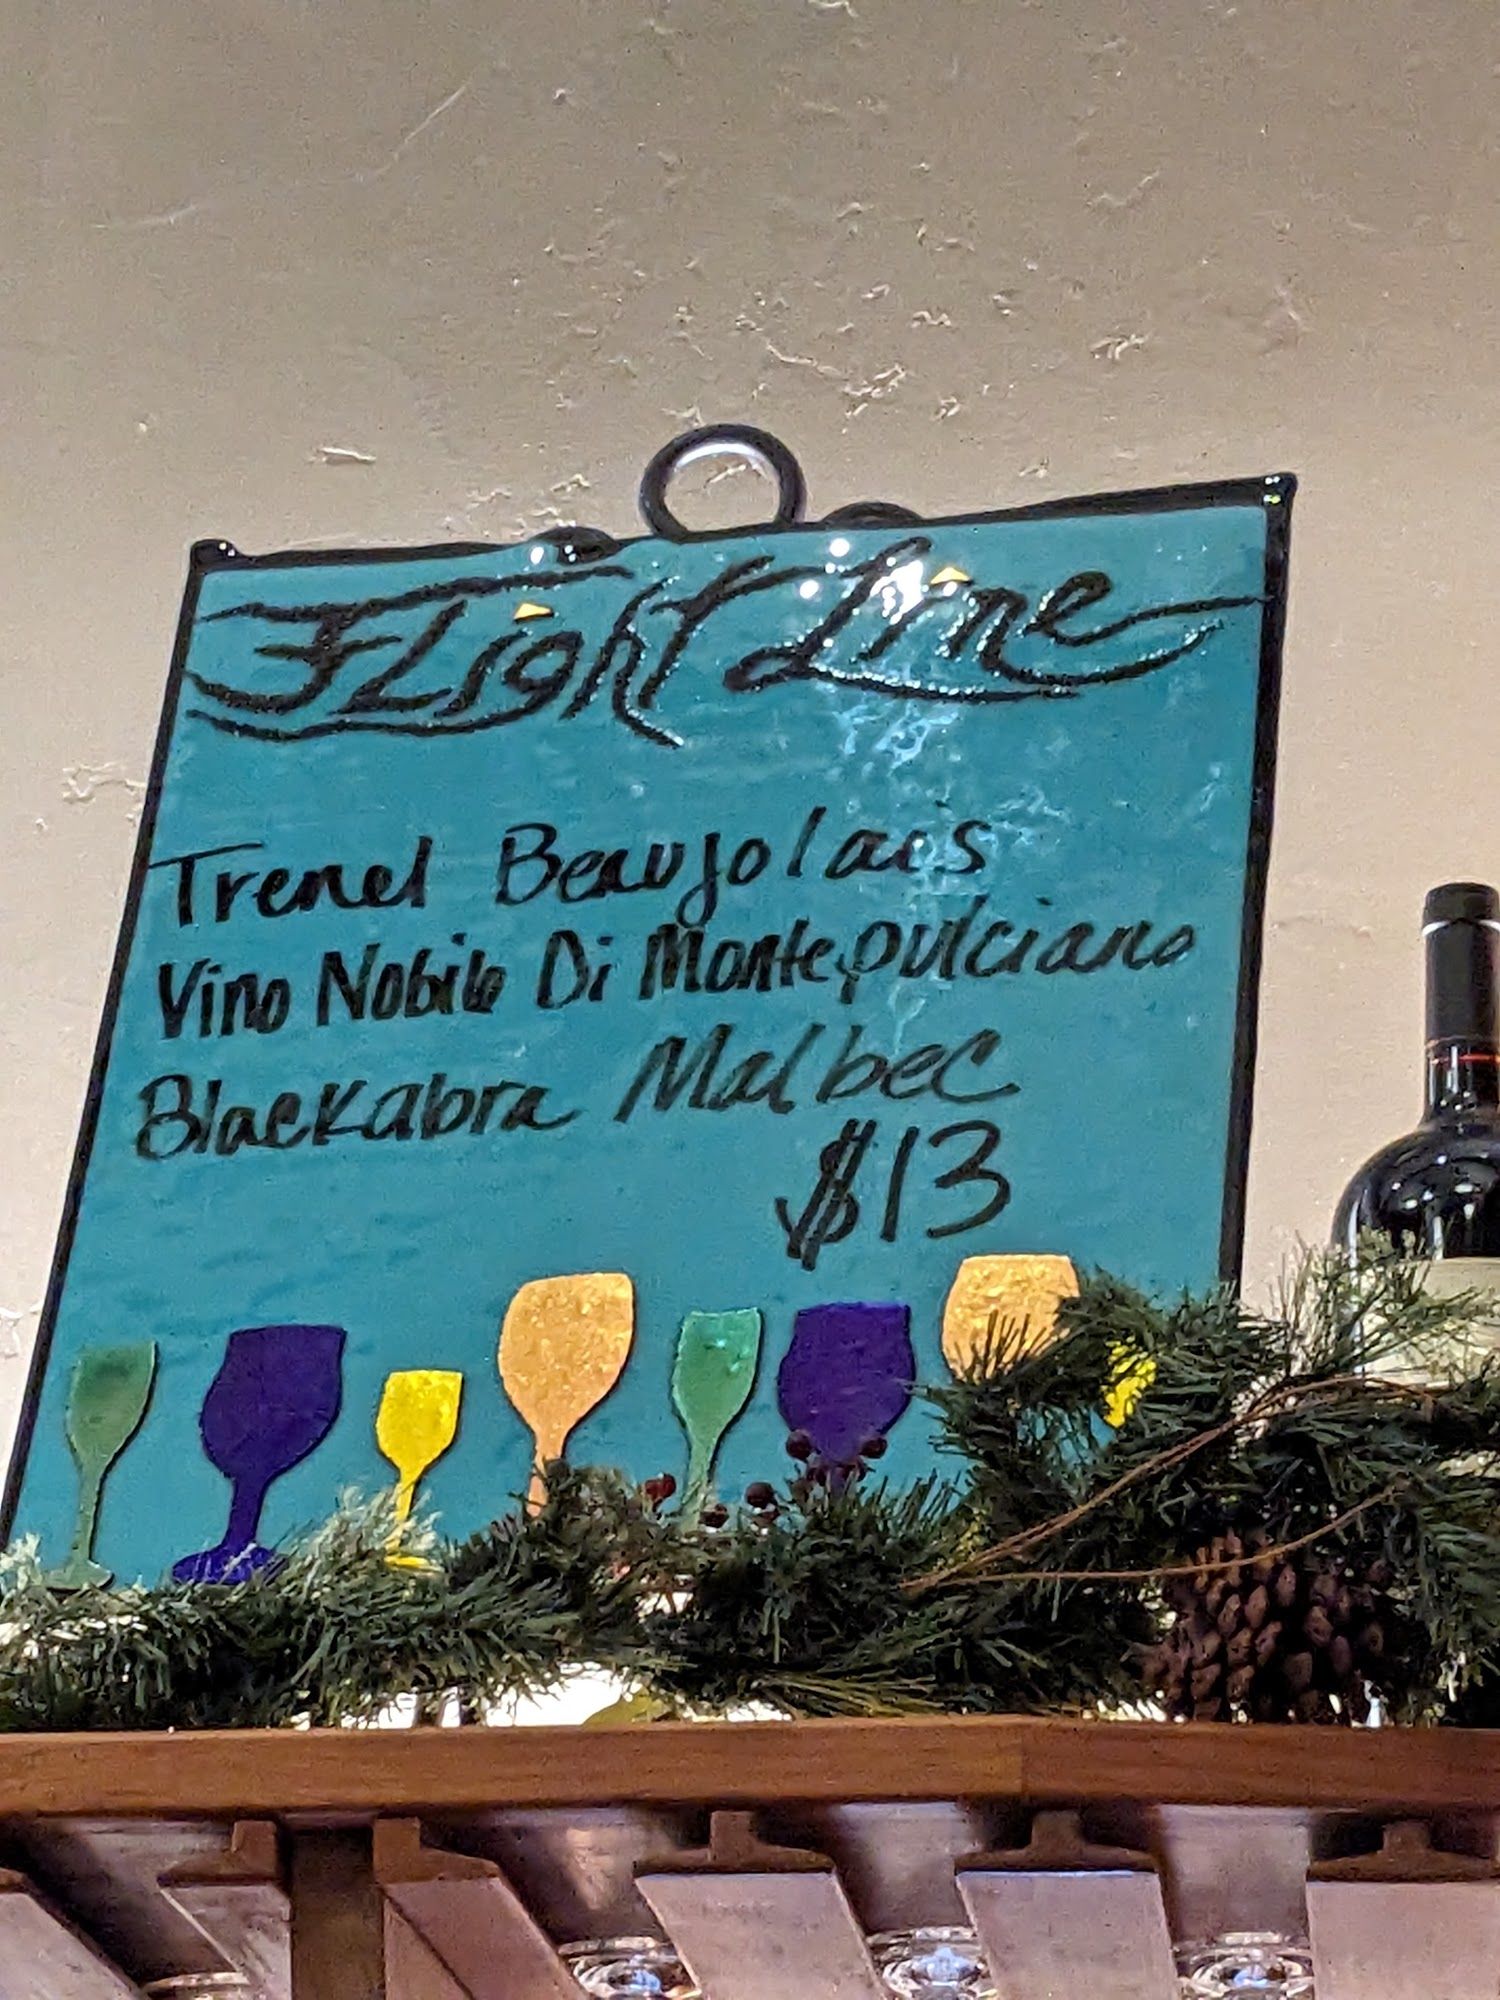 Flight Line
Trenel Beaujolais
Vino Nobile Di Montepulciano
Blackabra Malbec
$13